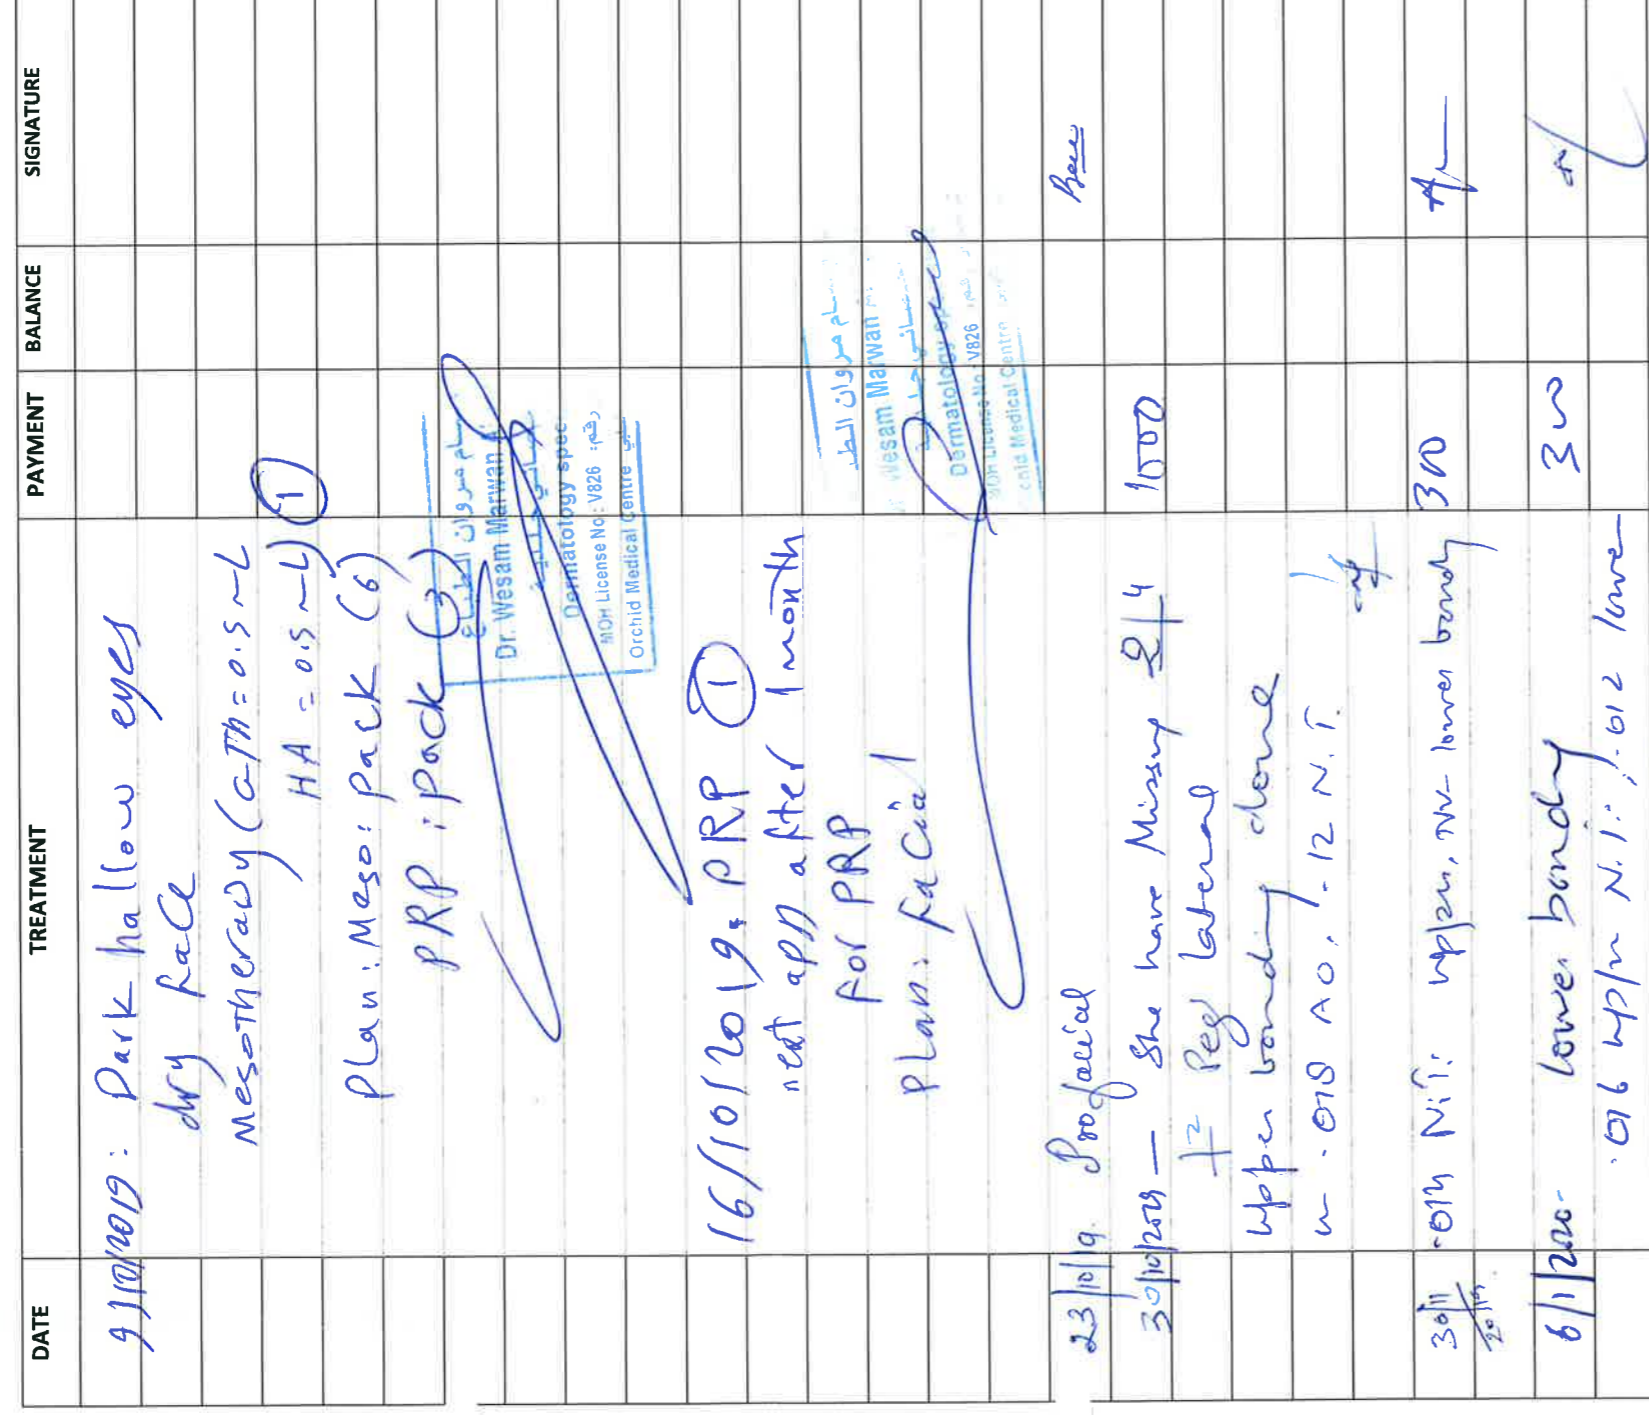 DATE TREATMENT PAYMENT BALANCE SIGNATURE
9/10/2019: Dark hallow eyes
dry face
Mesotherapy (GTH = 0.5 mL
HA = 0.5 mL) 1
Plan: Meso: pack (6)
PRP: pack (3)
سام مروان الطباع
Dr. Wesam Marwan
Dermatology spec
MOH License No: V826 رقم:
Orchid Medical Centre
16/10/2019: PRP 1
next app after 1 month
for PRP
Plan: facial
سام مروان الط
Wesam Marwan
Dermatology spec
MOH License No: V826
chid Medical Centre
23/10/19 Profacial
30/10/2019 — She have Missing 2/4 1000
12 Peg lateral
upper bonding done
.018 A0, .12 N.T.
30/11/2019 .014 N.T. upper, lower bondy 300
6/1/2020 - lower bonding 300
.016 upper N.T. .012 lower